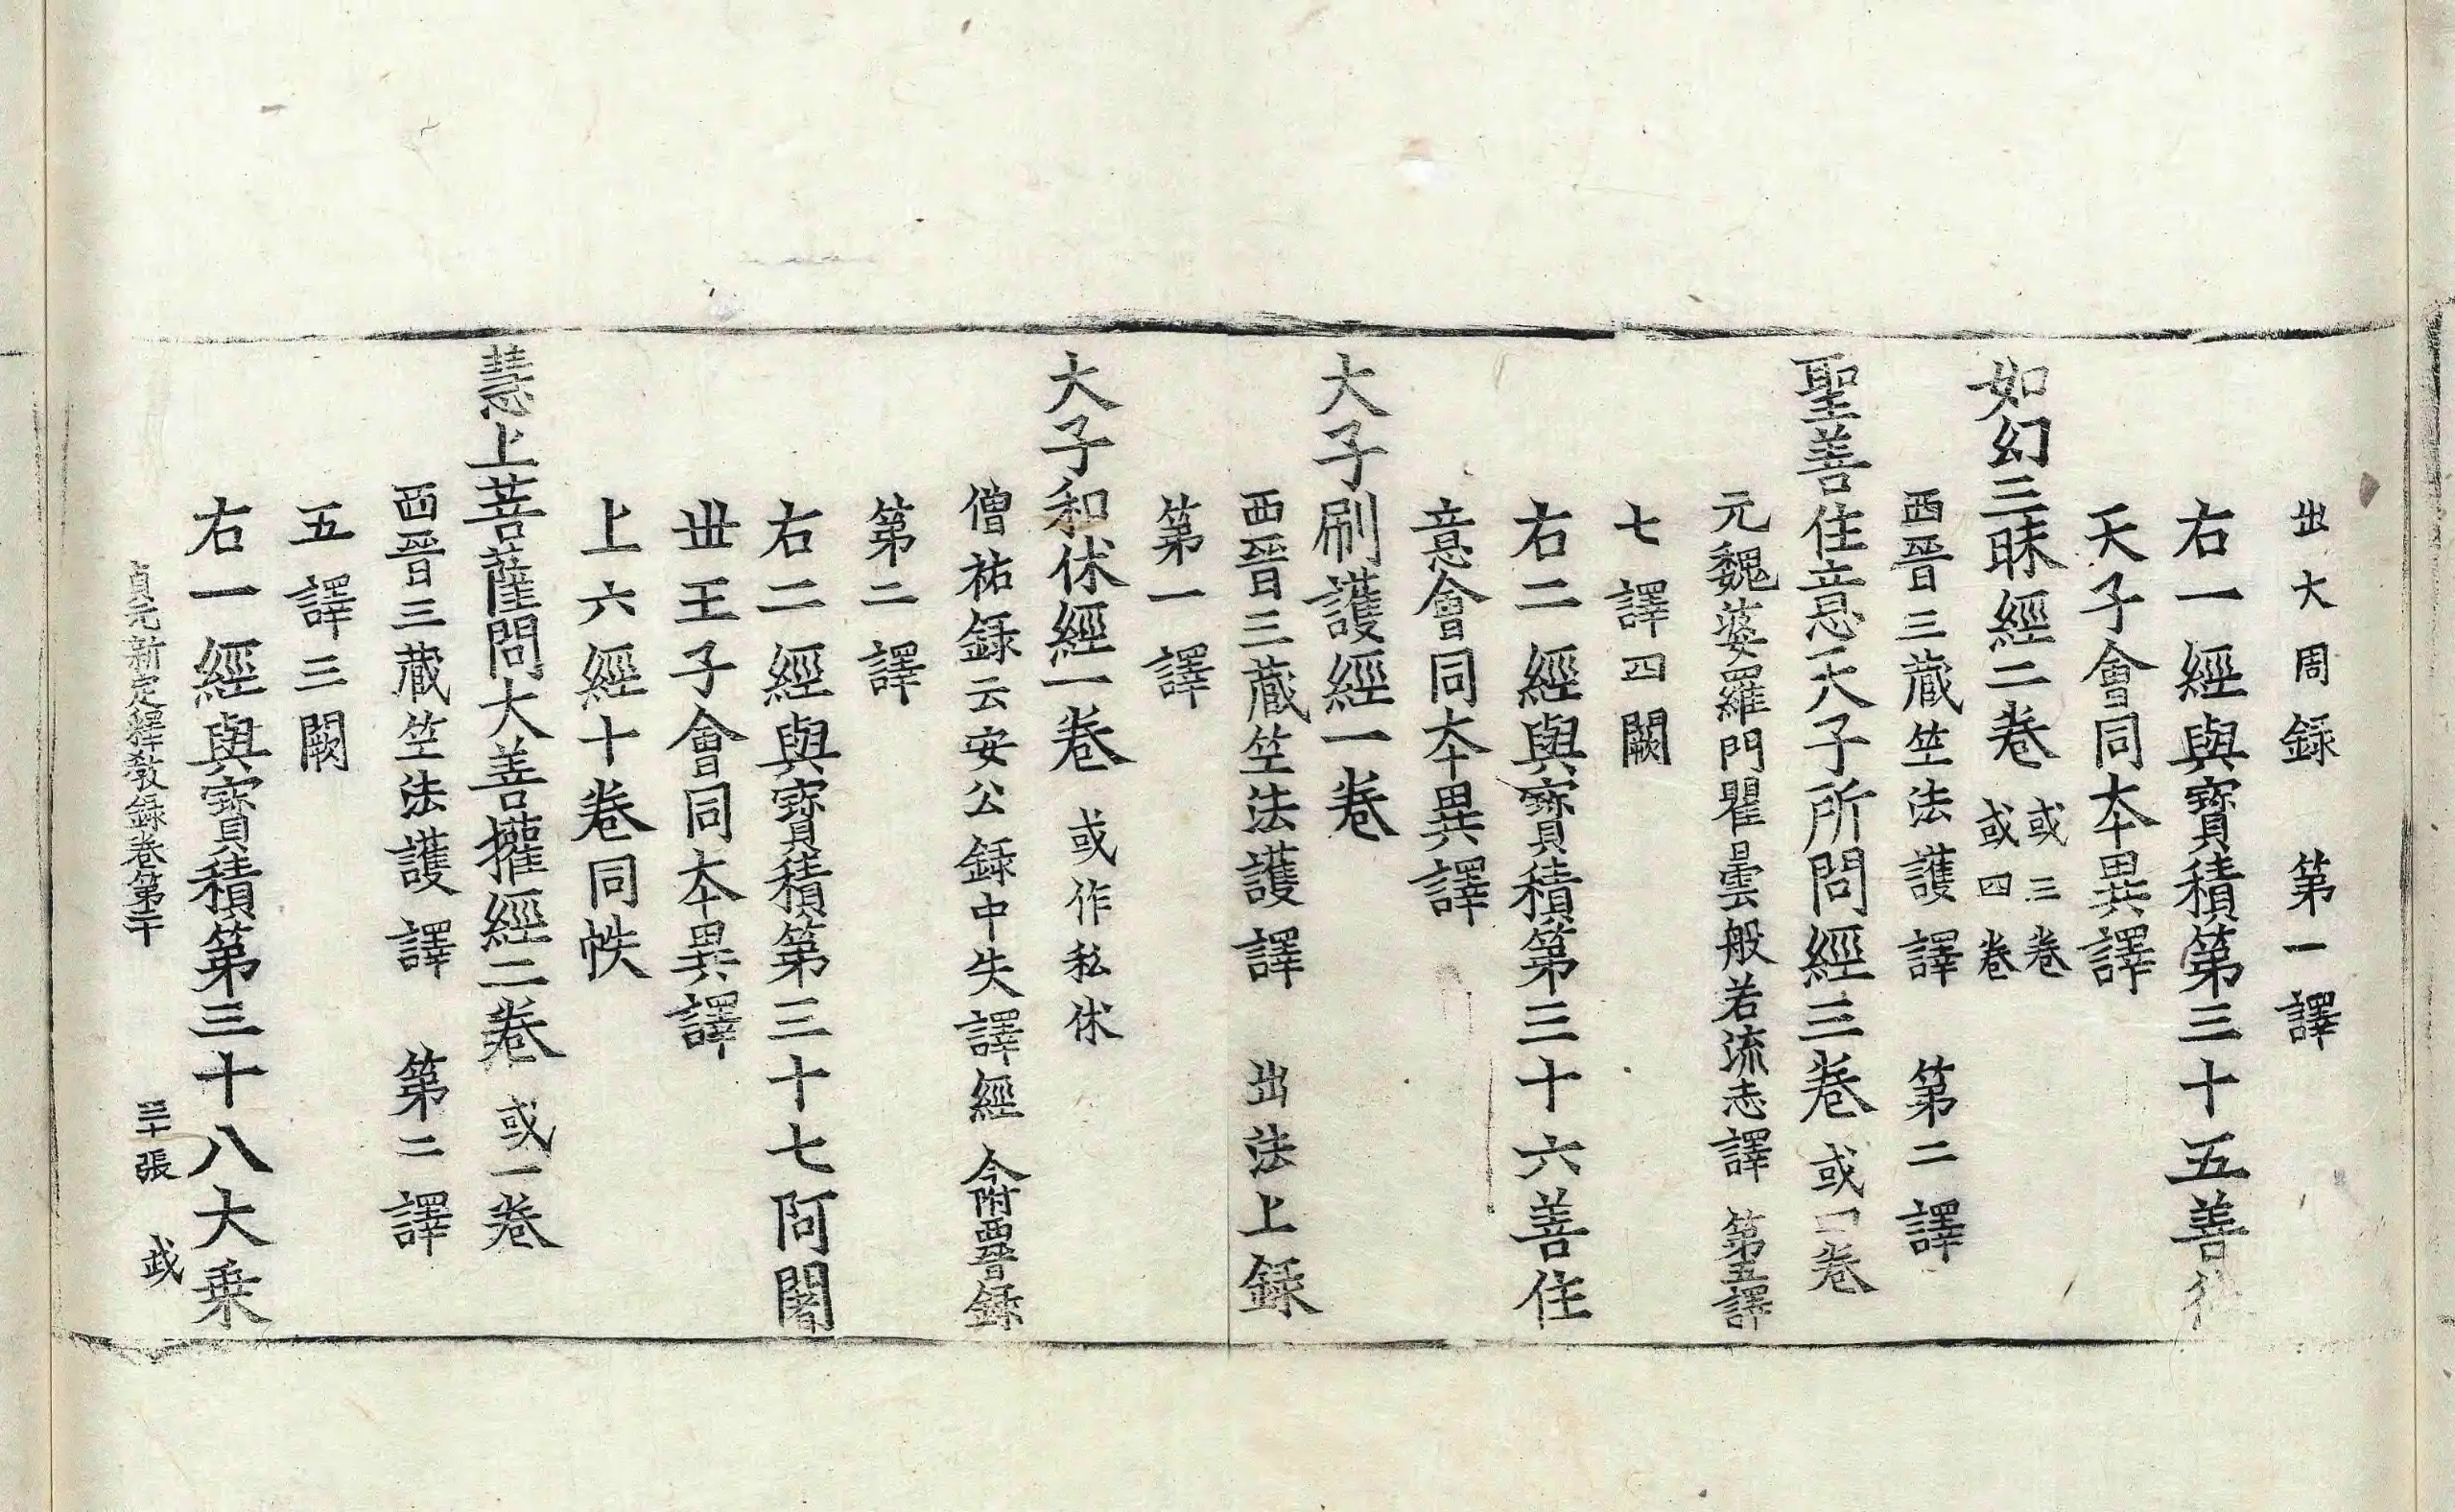 出大周録 第一譯
右一經與寶積第三十五善德
天子會同本異譯
如幻三昧經二卷 或三卷 或四卷
西晉三藏竺法護譯 第二譯
聖善住意天子所問經三卷 或一卷
元魏婆羅門瞿曇般若流志譯 第五譯
七譯四闕
右二經與寶積第三十六善住
意會同本異譯
大子刷護經一卷
西晉三藏竺法護譯 出法上録
第一譯
大子和休經一卷 或作私休
僧祐録云安公録中失譯經 今附西晉録
第二譯
右二經與寶積第三十七阿闍
世王子會同本異譯
上六經十卷同帙
慧上菩薩問大善攉經二卷 或一卷
西晉三藏竺法護譯 第二譯
五譯三闕
右一經與寶積第三十八大乗
貞元新定釋教録卷第二十 三十張 武